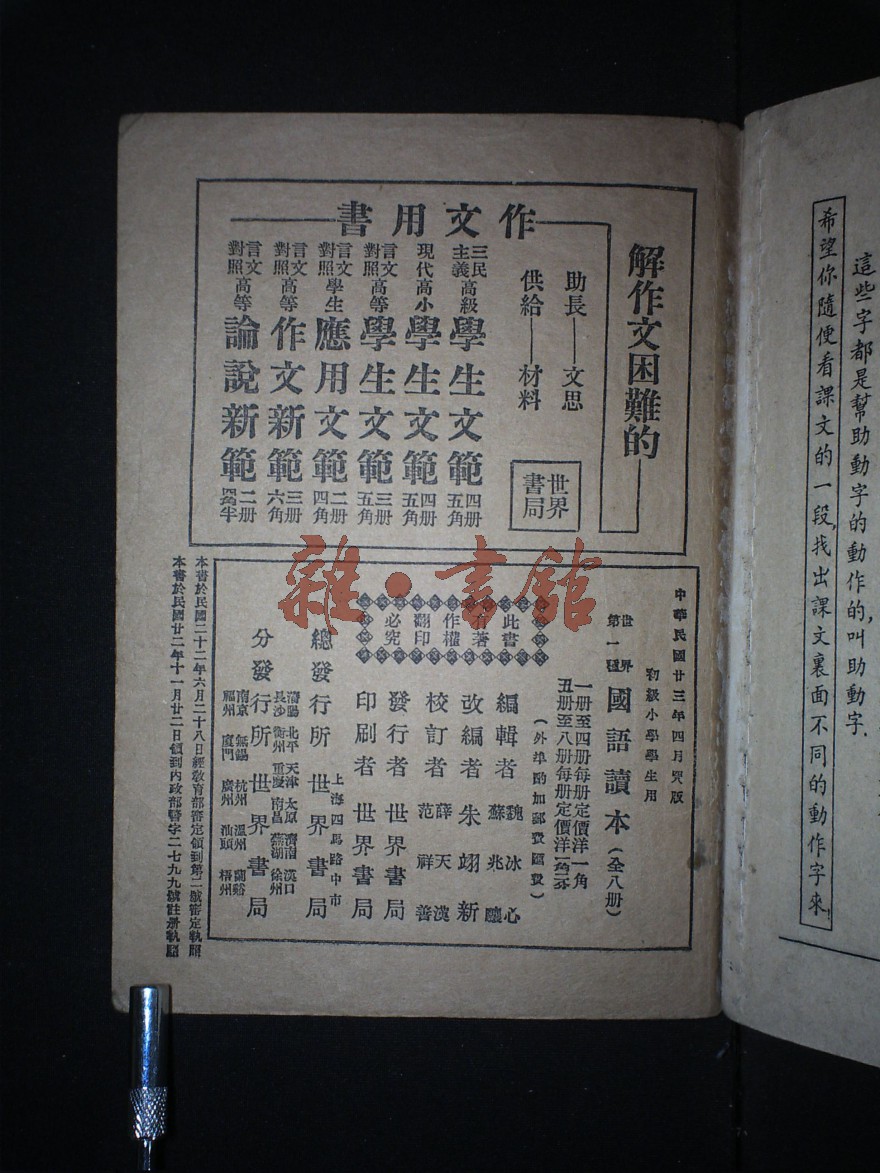 這些字都是幫助動字的動作的,叫助動字.
希望你隨便看課文的一段,找出課文裏面不同的動作字來!
解作文困難的
作文用書
助長——文思
供給——材料
世界書局
三民主義高級學生文範四册五角
現代高小學生文範四册五角
言文對照高等學生文範三册五角
言文對照學生應用文範二册四角
言文對照高等作文新範三册六角
言文對照高等論說新範二册
中華民國廿三年四月
初級小學學生用
世界第一種國語讀本(全八册)
一册至四册每册定價洋一角
五册至八册每册定價洋一角
(外埠酌加郵費匯費)
此書有著作權翻印必究
編輯者 魏冰心 蘇兆驤
改編者 朱翊新
校訂者 薛天漢 范祥善
發行者 世界書局
印刷者 世界書局
總發行所 上海四馬路中市 世界書局
分發行所 世界書局
瀋陽 北平 天津 太原 濟南 漢口
長沙 衡州 重慶 南昌 蕪湖 徐州
南京 無錫 杭州 溫州 蘭谿
福州 廈門 廣州 汕頭 梧州
本書於民國二十二年六月二十八日經教育部審定領到第二號審定執照
本書於民國廿二年十一月廿二日領到內政部警字二七九九號註册執照
雜·書館